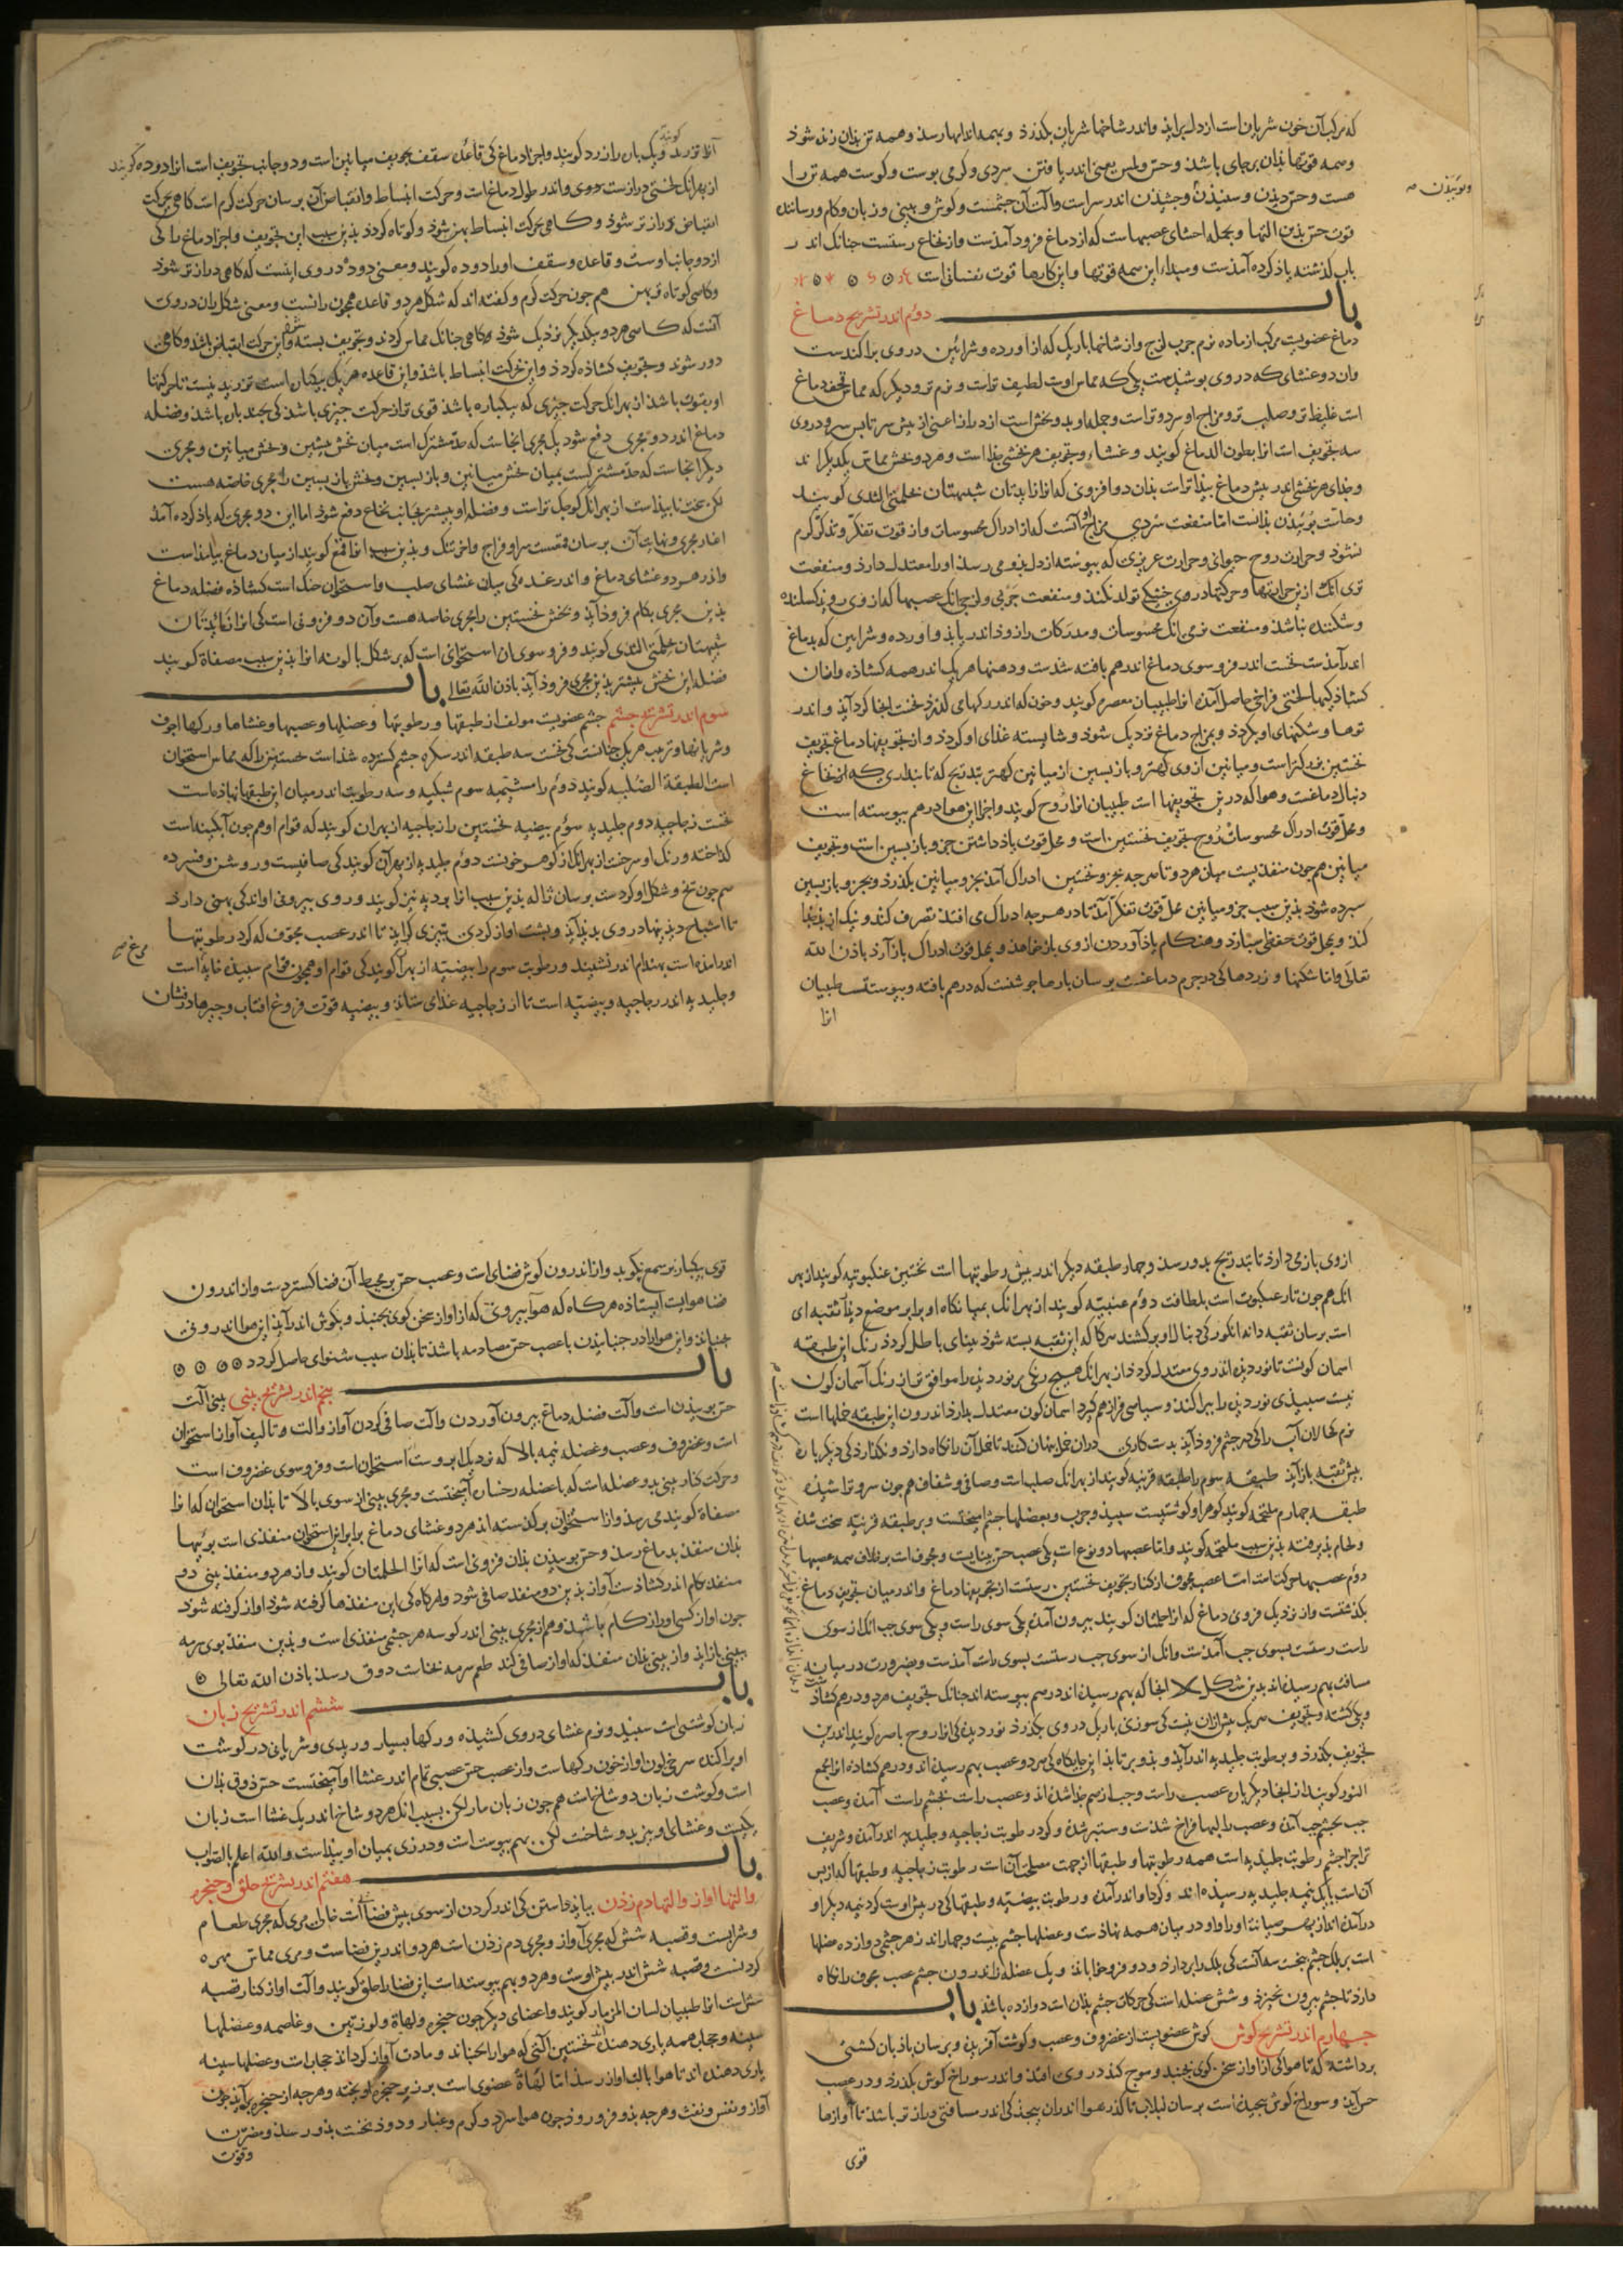 که مرکب آن خون شریان است از دل براید واندر شاخها شریان بکذرد و بهمه اندامها رسد وهمه تن بذان زنده شوذ
وهمه قوتها بذان برجای باشد وحس ولمس یعنی اندر یافتن سردی وکرمی پوست وکوشت همه تن را
هست وحس دیدن وشنیذن وچشیذن اندر سراست وآلت آن چشمست وکوش وبینی وزبان وکام ورسانند
وبوئیذن صح
قوت حس بذین التها وبجمله احشای عصبهاست که از دماغ فرود آمذست واز نخاع رستست چنانک اندر
باب کذشته یاذ کرده آمذست ومبداء این همه قوتها واین کارها قوت نفسانی است
باب
دوم اندر تشریح دماغ
دماغ عضویست مرکب از ماده نرم چرب لزج واز شاخها باریک که از آورده وشرائین در وی براکندست
وان دو غشای که در وی پوشیدست یکی که مماس اوست لطیف تراست ونرم تر ودیکر که مماس قحف دماغ
است غلیظ تر وصلب تر ومزاج او سرد وتر است وجمله او بدو بخش است از درازا اعنی از پیش سر تا پس سر ودروی
سه تجویف است انرا بطون الدماغ کویند وغشاء وتجویف هر بخشی جذا است وهر دو بخش مماس یکدیکر اند
وجذای هر بخشی اندر پیش دماغ پیذا تر است بذان دو افزونی که انرا زایدتان شبیهتان بحلمتی الثدی کویند
وحاست بوئیذن بذانست اما منفعت سردی مزاج او آنست که از ادراک محسوسات واز قوت تفکر وتذکر کرم
نشوذ وحرارت روح حیوانی وحرارت غریزی که پیوسته از دل بذو می رسذ اورا معتدل دارد ومنفعت
تری انک ازین حرارتها وحرکتها در وی خشکی تولد نکند ومنفعت چربی ولزجی انک عصبها که از وی روید کسلنده
وشکننده نباشذ ومنفعت نرمی انک محسوسات ومدرکات را زود اندر یابذ واورده وشرایین که بدماغ
اندر آمذست نخست اندر فروسوی دماغ اندر هم بافته شدست ودهنها هریک اندر همه کشاده وازان
کشاذکیها لختی فراخی حاصل آمده انرا طبیبان معصره کویند وخون که اندر رکهای کذرذ نخست انجا کرد آید واندر
توها وشکنهای او بکردد وبمزاج دماغ نزدیک شوذ وشایسته غذای او کردد واز تجویفها دماغ تجویف
نخستین بزرکتر است ومیانین از وی کهتر وبازپسین از میانین کهتر بتدریج که تا بنداری که از نخاع
دنبال دماغست وهوا که درین تجویفها است طبیبان انرا روح کویند واجزا این هوا در هم پیوسته است
ومحل قوت ادراک محسوسات روح تجویف نخستین است ومحل قوت یاذداشتن جزو بازپسین است وتجویف
میانین هم چون منفذیست میان هر دو تا هر چه بجزو نخستین ادراک آمد بجزو میانین بکذرذ وبجزو بازپسین
سپرده شوذ بذین سبب جزو میانین محل قوت تفکر آمذ تا در هرچه ادراک می افتد تصرف کند ونیک از بد جدا
کند وبمحل قوت حفظ می سپارد وهنکام یاذ آوردن از وی باز خواهد وبمحل قوت ادراک باز آرد باذن الله
تعالی واما شکنها وزردها کی در جرم دماغست برسان پارها جوشنست که درهم بافته وپیوستست طبیبان
انرا
آنرا تزرید کویند ویک پان را زرد کویند واجزاء دماغ کی قاعده سقف تجویف میانین است ودو جانب تجویف است انرا دوده کویند
از بهر انک لختی دراز است دروی واندر طول دماغ است وحرکت انبساط وانقباض آن برسان حرکت کرم است کاهی بحرکت
انقباض دراز تر شوذ وکاهی بحرکت انبساط پهن شوذ وکوتاه کردد بذین سبب این تجویف واجزاء دماغ را کی
از دو جانب اوست وقاعده وسقف اورا دوده کویند ومعنی دوده دروی اینست که کاهی دراز تر شوذ
وکاهی کوتاه وپهن هم چون حرکت کرم وکفته اند که شکل هر دو قاعده همچون رانست ومعنی شکل ران دروی
آنست که کاهی هر دو بیکدیکر نزدیک شوذ وکاهی چنانک مماس کردند وتجویف بسته شود واین حرکت انقباض باشد وکاهی
دور شوند وتجویف کشاذه کردذ واین حرکت انبساط باشذ واین قاعده هر یک بیکبان است تزرید نیست تا حرکتها
او بقوت باشذ از بهر انک حرکت چیزی که بیکباره باشذ قوی تر از حرکت چیزی باشذ کی بچند پان باشذ وفضله
دماغ اندر دو مجری دفع شود یک مجری انجاست که حد مشترک است میان بخش پیشین وبخش میانین ومجری
دیکر انجاست که حد مشترکست بمیان بخش میانین وبازپسین وبخش بازپسین را مجری خاصه هست
لکن سخت ناپیذاست از بهر انک کوچک تر است وفضله او بیشتر بجانب نخاع دفع شوذ اما این دو مجری که یاذ کرده آمذ
اغاز مجری ونهایت آن برسان قمعست سر او فراخ واخر تنک وبذین سبب انرا قمع کویند از میان دماغ بیامذاست
واندر هر دو غشای دماغ واندر غده کی میان غشای صلب واستخوان حنک است کشاذه فضله دماغ
بذین مجری بکام فروذ آید وبخش نخستین را مجری خاصه هست وآن دو فزونی است کی انرا زایدتان
شبیهتان بحلمتی الثدی کویند وفرو سوی ان استخوانی است که بر شکل پالونه انرا بذین سبب مصفاة کویند
فضله این بخش بیشتر بذین مجری فروذ آیذ باذن الله تعالی باب
سوم اندر تشریح چشم چشم عضویست مولف از طبقها ورطوبتها وعضلها وعصبها وغشاها ورکها اجوف
وشریانها وترکیب هر یک چنانست کی نخست سه طبقه اندر سکره چشم کسترده شذاست نخستین را که مماس استخوان
است الطبقة الصلبه کویند دوم را مشیمیه سوم شبکیه وسه رطوبت اندر میان این طبقها نهاذه است
نخست زجاجیه دوم جلیدیه سوم بیضیه نخستین را زجاجیه از بهر ان کویند که قوام او هم چون آبکینه است
کذاخته ورنک او سرخست از بهر انک از کوهر خونست دوم جلیدیه از بهر آن کویند کی صافیست وروشن وفسرده
هم چون یخ وشکل او کردست برسان ژاله بذین سبب انرا بردیه نیز کویند وروی بیرونی او اندکی پهنی دارد
تا اشباح دیذنیها در وی پدید آید وپشت او از کردی بتیزی کراید تا اندر عصب مجوف که کرد رطوبتها
اندر امذه است بهندام اندر نشیند ورطوبت سوم را بیضیه از بهر آن کویند کی قوام او همچون قوام سپیذه خایه است
وجلیدیه اندر زجاجیه وبیضیه است تا از زجاجیه غذای ستاند وبیضیه قوت فروغ افتاب وچیزها درفشان
از وی باز می دارد تا بتدریج بدو رسد وچهار طبقه دیکر اندر پیش رطوبتها است نخستین عنکبوتیه کویند از بهر
انک هم چون تار عنکبوت است بلطافت دوم عنبیه کویند از بهر انک بمیانکاه او برابر موضع دیدار ثقبه ای
است برسان ثقبه دانه انکور کی دنبال او برکشند هرکاه که این ثقبه بسته شوذ بینای باطل کردد رنک این طبقه
اسمان کونست تا نور دیذه اندروی معتدل کردد از بهر انک هیچ رنکی بر نور دیذه را موافق تر از رنک آسمان کون
نیست سپیذی نور دیذه را بپراکند وسیاهی فراز هم کیرد اسمان کون معتدل بدارد اندرون این طبقه خملها است
نرم کحالان آب را کی در چشم فروذ آید بدست کاری در ان خملها پنهان کنند تا خمل آن را نکاه دارد ونکذارد کی دیکر باره
پیش ثقبه باز آید طبقه سوم را طبقه قرنیه کویند از بهر انک صلب است وصافی وشفاف هم چون سرو تراشیده
طبقه چهارم ملتحمه کویند کوهر او کوشتیست سپیذ وچرب وبعضلها چشم آمیختست وبر طبقه قرنیه سخت شده
ولحام پذیرفته بذین سبب ملتحمه کویند واما عصبها دو نوع است یکی عصب حس بینایست ومجوف است برخلاف همه عصبها
دوم عصبهاء حرکت است اما عصب مجوف از کنار تجویف نخستین رستست از تجویفها دماغ واندر میان تجویف دماغ
بکذشتست واز نزدیک فزونی دماغ که انرا حلمتان کویند بیرون آمده یکی سوی راست ویکی سوی چپ انک از سوی
راست رستست بسوی چپ آمدست وانک از سوی چپ رستست بسوی راست آمدست وبضرورت در میانه
مسافت بهم رسیده اند بدین شکل X انجا که بهم رسیده اند در هم پیوسته اند چنانک تجویف هر دو در هم کشاذ
ویکی کشته وتجویف هر یک بیش ازان نیست کی سوزنی باریک در وی بکذرذ نور دیذه کی انرا روح باصره کویند اندرین
تجویف بکذرد وبر رطوبت جلیدیه اندر آید وبذو برتابذ این جایکاه کی هر دو عصب بهم رسیده اند ودرهم کشاده انرا مجمع
النور کویند از انجا دیکر باره عصب راست وچپ از هم جذا شده اند وعصب راست بچشم راست آمده وعصب
چپ بچشم چپ آمده وعصب را لبها فراخ شذست وستبر شده وکرد رطوبت زجاجیه وجلیدیه اندر آمده وشریف
تر اجزا چشم رطوبت جلیدیه است همه رطوبتها وطبقها از جهت مصلحت آن است رطوبت زجاجیه وطبقها که از پس
آن است بیک نیمه جلیدیه رسیده اند وکرد او اندر آمده ورطوبت بیضیه وطبقها کی در پیش اوست کرد نیمه دیکر او
درآمده اند از بهر صیانت اورا واو در میان همه نهاذست وعضلها چشم بیست وچهار اند هر چشمی دوازده عضلها
است بر پلک چشم پنجست سه آنست کی پلک را بردارد ودو فرو خواباند ویک عضله از اندرون چشم عصب مجوف را نکاه
دارد تا چشم بیرون نخیزد وشش عضله است کی حرکات چشم بذان است دوازده باشد باب
چهارم اندر تشریح کوش کوش عضویست از غضروف وعصب وکوشت آفریده وبرسان باذبان کشتی
برداشته که تا هوا کی از آواز سخن کوی بجنبد وموج کند در وی افتد واندر سوراخ کوش بکذرد ودر عصب
حس آید وسوراخ کوش پیچیده است برسان لبلاب تا کذر هوا اندران پیچذکی اندر مسافتی دراز تر باشد تا آوازها
قوی
قوی بیکبار بر سمع نکوبد واز اندرون کوش فضای است وعصب حس بر محیط آن فضا کستردست واز اندرون
فضا هوایست ایستاذه هرکاه که هوا بیرونی که از آواز سخن کوی بجنبذ وبکوش اندر آید این هوا اندرونی
جنباند واین هوا را در جنبانیدن با عصب حس مصادمه باشذ تا بذان سبب شنوای حاصل کردد
باب
پنجم اندر تشریح بینی بینی آلت
حس بوییذن است وآلت فضله دماغ بیرون آوردن وآلت صافی کردن آواز والت وتالیف آواز استخوان
است وغضروف وعصب وعضله نیمه بالا که نزدیک ابروست استخوان است وفروسوی غضروف است
وحرکت کنار بینی بدو عضله است که با عضله رخسار آمیختست ومجری بینی از سوی بالا تا بذان استخوان که انرا
مصفاة کویند می رسد واز استخوان برکذشته اند هر دو غشای دماغ برابر این استخوان منفذی است بویها
بذان منفذ بدماغ رسد وحس بوییدن بذان فزونی است که انرا الحلمتان کویند واز هر دو منفذ بینی دو
منفذ بکام اندر کشاذست آواز بذین دو منفذ صافی شود وهرکاه کی این منفذها کرفته شوذ اواز کرفته شوذ
چون اواز کسی اورا زکام باشد وهم از مجری بینی اندر کوسه هر چشمی منفذی است وبذین منفذ بوی سرمه
ببینی باز اید واز بینی بذان منفذ که اواز صافی کند طعم سرمه بخاست ذوق رسد باذن الله تعالی
باب
ششم اندر تشریح زبان
زبان کوشتی است سپید ونرم غشای در وی کشیذه ورکها بسیار وریدی وشریانی در کوشت
او پراکنده سرخی لون او از خون رکهاست واز عصب حس عصبی تمام اندر غشاء او آمیختست حس ذوق بذان
است وکوشت زبان دو شاخست هم چون زبان مار لکن بسبب انک هر دو شاخ اندر یک غشا است زبان
یکیست وغشای او نیز بدو شاخست لکن بهم پیوست است ودرزی بمیان او پیذاست والله اعلم بالصواب
باب
هفتم اندر تشریح حلق وحنجره
والتها اواز والتها دم زدن بباید دانستن کی اندر کردن از سوی پیش فضا است خالی مری که مجری طعام
وشرابست وقصبه شش که مجری آواز ومجری دم زدن است هر دو اندرین فضاست ومری مماس مهره
کردنست وقصبه شش اندر پیش اوست وهر دو بهم پیوسته است این فضا را حلق کویند وآلت اواز کنار قصبه
شش است انرا طبیبان لسان المزمار کویند واعضای دیکر چون حنجره ولهاة ولوزتین وغلصمه وعضلها
سینه وحجاب همه یاری دهنده اند نخستین آلتی که هوا را جنباند ومادت آواز کرداند حجاب است وعضلها سینه
یاری دهنده اند تا هوا بالت اواز رسد اما لهاة عضوی است برزبر حنجره اویخته وهرچه از حنجره براید چون
آواز ونفس ونفث وهرچه بذو فرو رود چون هوا سرد وکرم وغبار ودود نخست بذو رسد ومضرت
وقوت